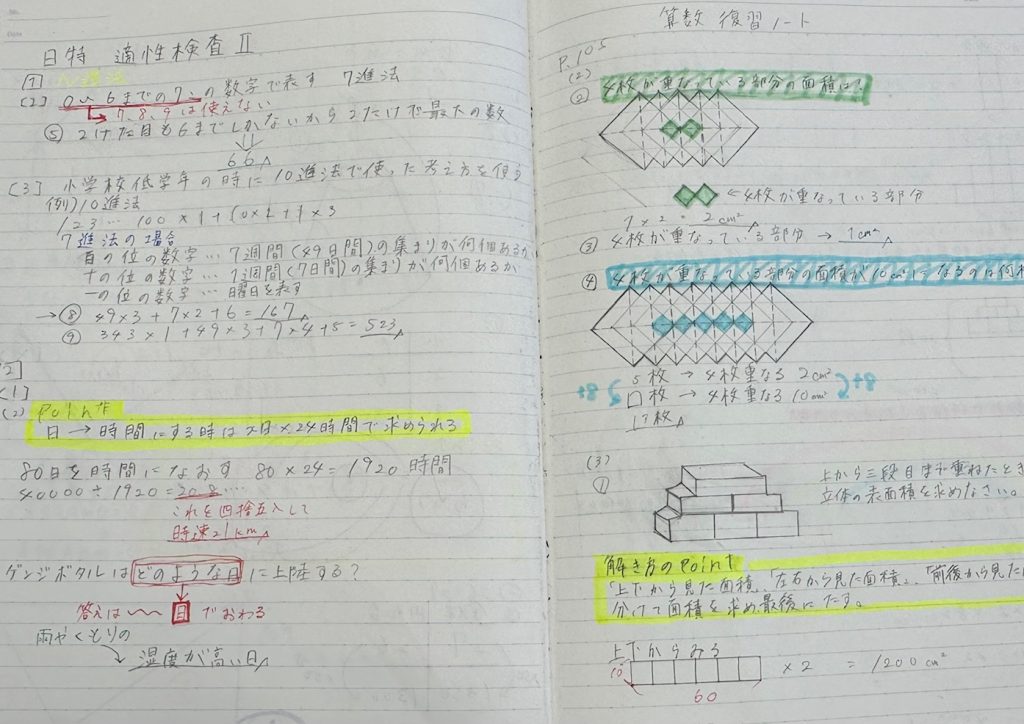 日特 適性検査Ⅱ
[1] N進法
(2) 0～6までの7つの数字で表す 7進法
7、8、9は使えない
⑤ 2けた目も6までしかないから2けたで最大の数
66
(3) 小学校低学年の時に10進法で使った考え方を使う
例)10進法
123… 100×1+10×2+1×3
7進法の場合
百の位の数字… 7週間(49日間)の集まりが何個あるか
十の位の数字… 1週間(7日間)の集まりが何個あるか
一の位の数字… 曜日を表す
→⑧ 49×3+7×2+6=167
⑨ 343×1+49×3+7×4+5=523
[2]
<1>
(2) Point
日→時間にする時は×日×24時間で求められる
80日を時間になおす 80×24=1920時間
40000÷1920=20.8….
これを四捨五入して
時速21km
ゲンジボタルはどのような日に上陸する?
答えは～～日でおわる
雨やくもりの
湿度が高い日
算数 復習ノート
P.105
(2)
② 4枚が重なっている部分の面積は?
←4枚が重なっている部分
1×2=2cm²
③ 4枚が重なっている部分→1cm²
④ 4枚が重なっている部分の面積が10cm²になるのは何枚
5枚→4枚重なる 2cm²
□枚→4枚重なる 10cm²
+8
+8
13枚
(3)
① 上から三段目まで重ねたとき
立体の表面積を求めなさい。
解き方のPoint
「上下から見た面積」、「左右から見た面積」、「前後から見た
分けて面積を求め、最後にたす。
上下からみる
10
60
×2 = 1200cm²